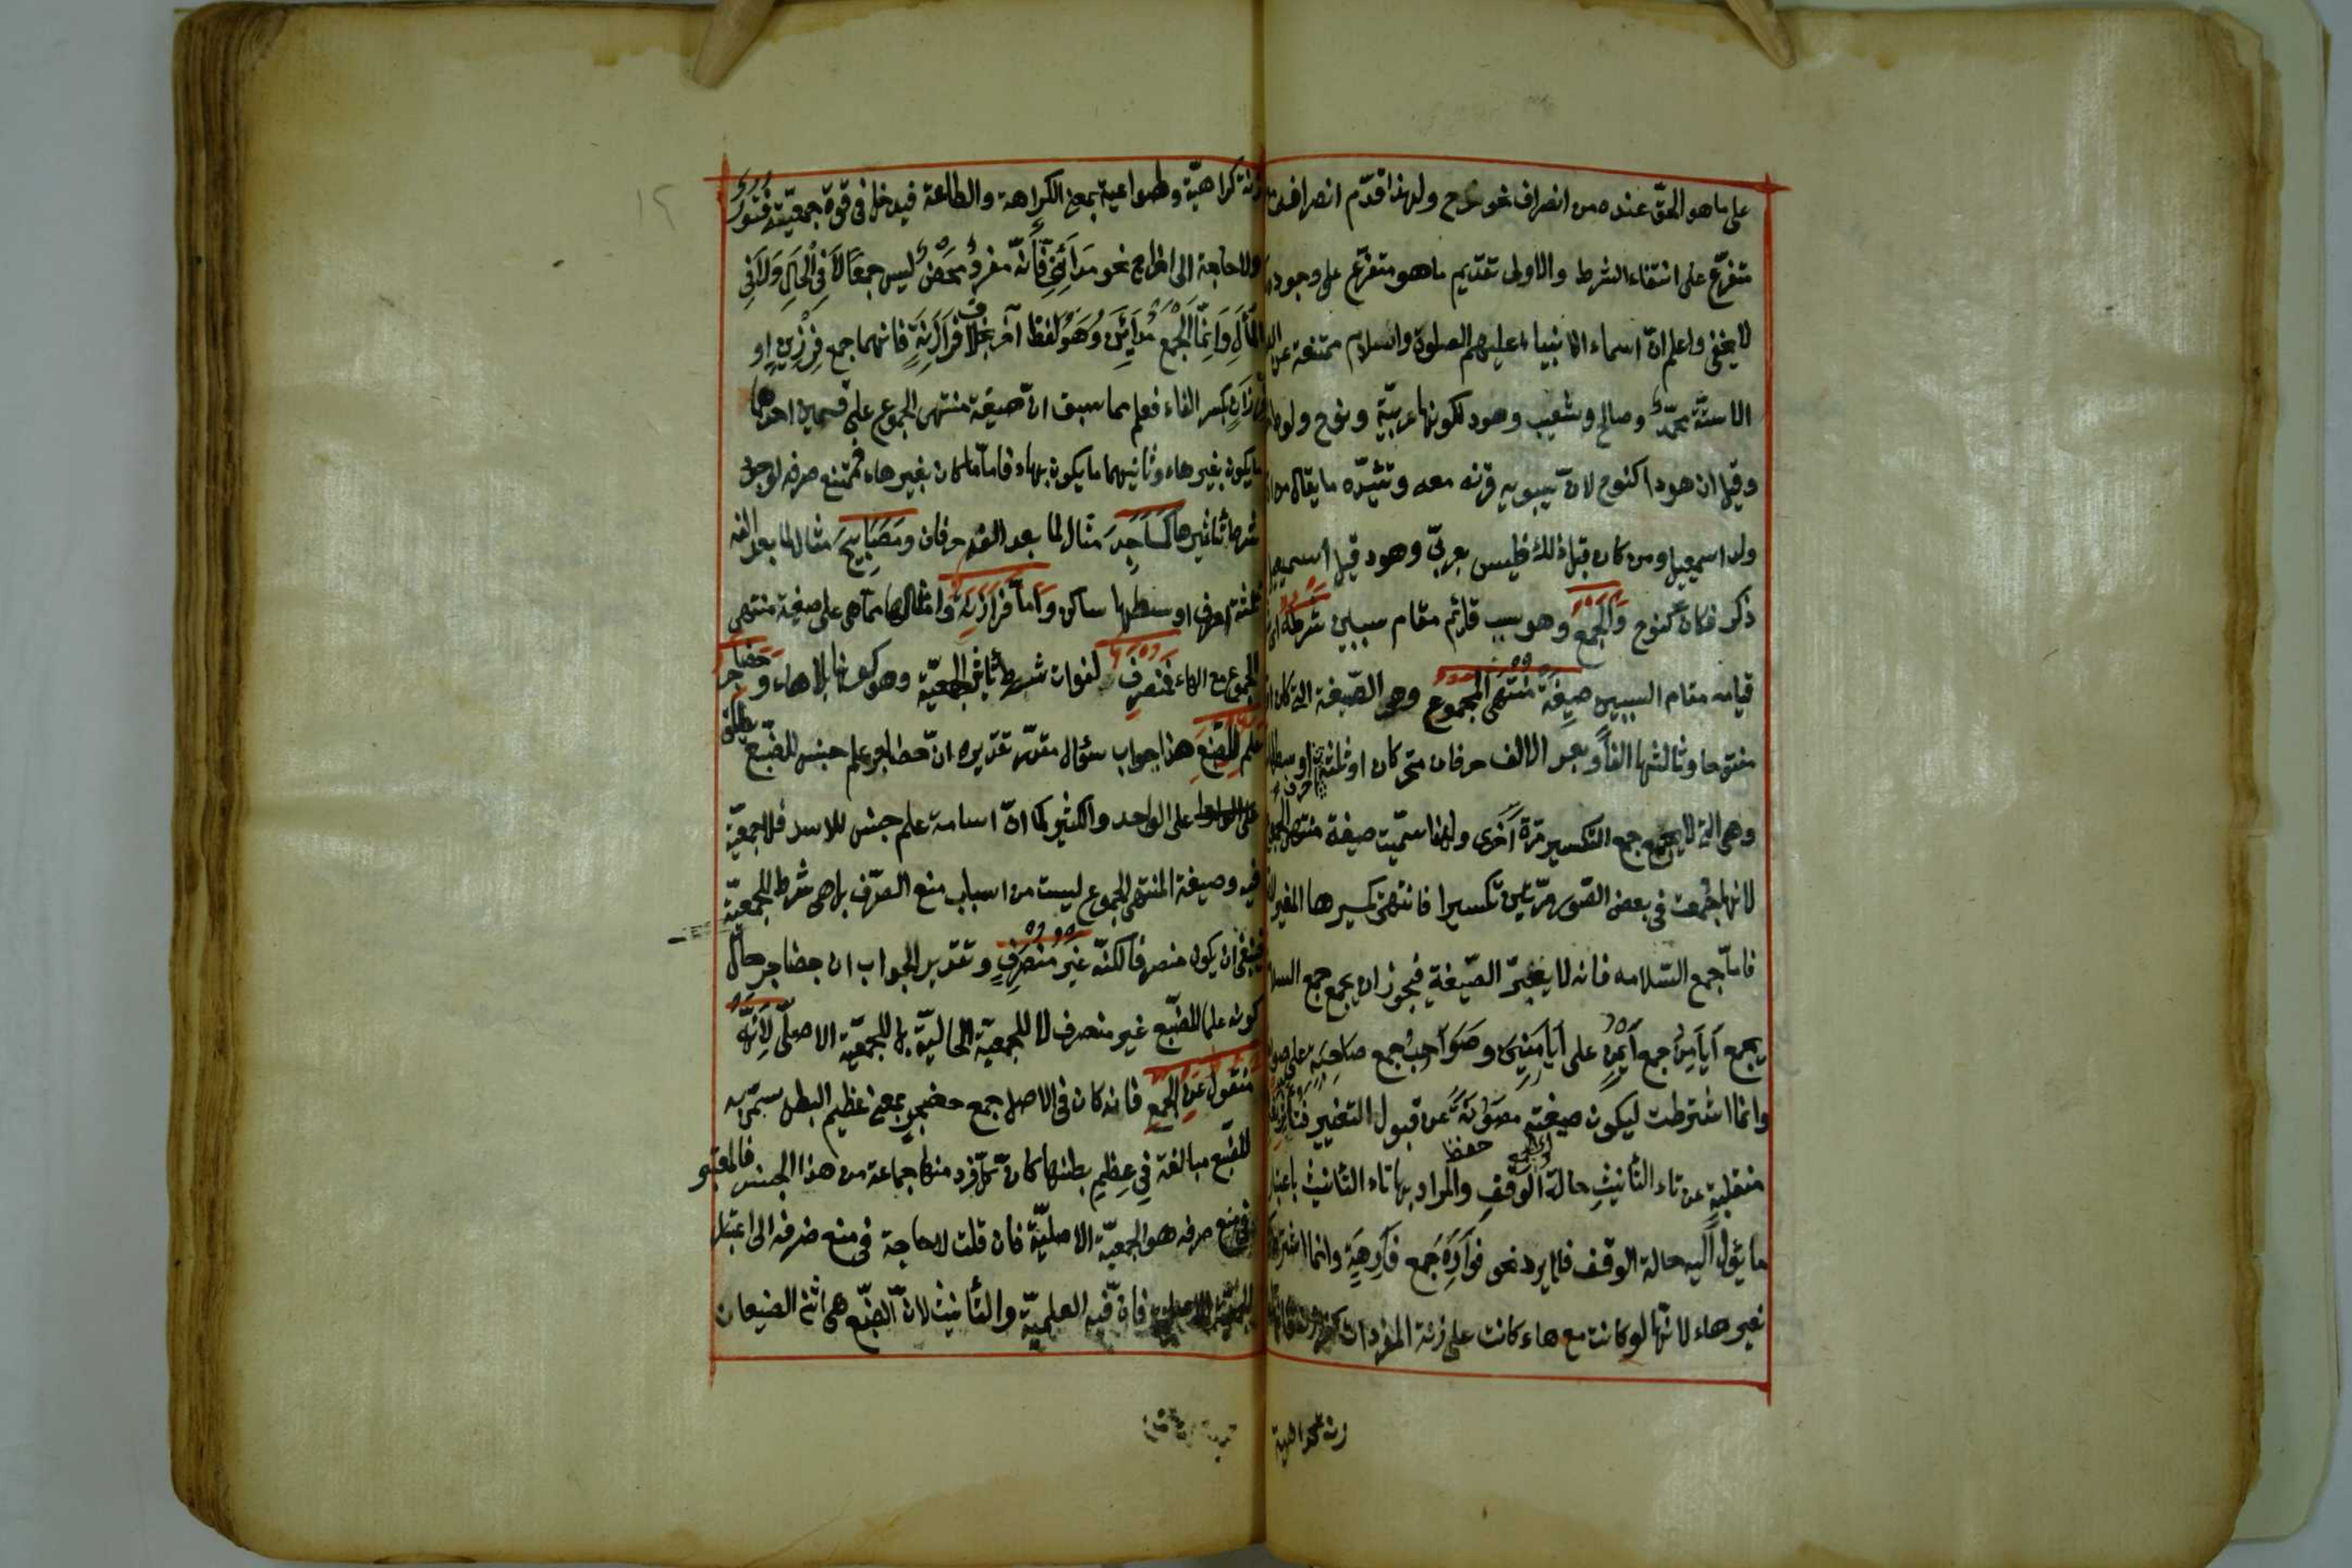 على ما هو الحق عنده من انصراف نحو نوح ولهذا قدّم انصراف
متفرّع على انتفاء الشرط والاولى تقديم ما هو متفرّع على وجود
لا يخفى واعلم انّ اسماء الانبياء عليهم الصلوة والسلام ممتنعة عن
الا ستّة محمّد وصالح وشعيب وهود لكونها عربيّة ونوح ولوط
وقيل ان هودا كنوح لانّ سيبويه قرنه معه ويؤيّده ما يقال من
ولد اسمعيل ومن كان قبل ذلك فليس بعربيّ وهود قبل اسمعيل
ذكر فكان كنوح وَالْجَمْعُ وهو سبب قائم مقام سببين شَرْطُهُ اى
قيامه مقام السببين صِيغَةُ مُنْتَهَى الْجُمُوعِ وهى الصّيغة التى كان
مفتوحا وثالثها الفا وبعد الالف حرفان متحركان او ثلثة احرف اوسطها
وهى التى لا يجمع جمع التكسير مرّة اُخرى ولهذا سمّيت صيغة منتهى
لانها جُمعت فى بعض الصّور مرّتين تكسيرا فانتهى تكسيرها المغيّر
فامّا جمع السّلامه فانه لا يغيّر الصّيغة فيجوز ان يجمع جمع السلا
يجمع اَيَامِنُ جمع اَيْمَنَ على اَيَامِنِينَ وصَوَاحِبُ جمع صَاحِبَةٍ على
وانما اشترطت ليكون صيغته مصونة عن قبول التغيير فتأثر
منقلبةٍ عن تاء التأنيثِ حالة الوقفِ والمراد بها تاء التأنيث باعتبار
ما يئول اليه حالة الوقف فلا يرد نحو فَوَارِهَ جمع فَارِهَةٍ وانما اشترط
بغير هاء لانّها لو كانت مع هاء كانت على زنة المفردات
زنة كراهية
زنة كراهيّة وطواعية بمعنى الكراهة والطاعة فيدخل فى قوة جمعيّته فتور
ولا حاجة الى اخراج نحو مَدَائِنِىّ فَاِنّه مفردٌ مَحْضٌ ليس جمعًا لَا فِى الْحَالِ وَلَا فِى
الْمَآلِ وَاِنَّمَا الْجَمْعُ مَدَايِنُ وَهُوَ لفظ آخر بخلاف فَرَازِنَةٍ فانهما جمع فِرْزِينٍ او
فِرْزَانٍ بكسر الفاء فعلم مما سبق انّ صيغة منتهى الجموع على قسمين احدهما
ما يكون بغير هاء وثانيهما ما يكون بهاء فامّا ما كان بغير هاء فممتنع صرفه لوجود
شرط تاثيرها كَمَسَاجِدَ مثال لما بعد الفه حرفان وَمَصَابِيحَ مثال لما بعد الفه
ثلثة احرف اوسطها ساكن وَاَمَّا فَرَازِنَةٌ وامثالها مما هى على صيغة منتهى
الجموع مع الهاء فَمُنْصَرِفٌ لفوات شرط تاثير الجمعيّة وهو كونها بلا هاء وحَضَاجِرُ
عَلَم لِلضَّبُعِ هذا جواب سؤال مقدّر تقديره انّ حضاجر علم جنس للضّبع يطلق
على الواحد والكثير كما انّ اسامة علم جنس للاسد فلا جمعيّة
فيه وصيغة المنتهى الجموع ليست من اسباب منع الصّرف بل هى شرط للجمعيّة
فينبغى ان يكون منصرفا لكنّه غَيْرُ مُنْصَرِفٍ وتقدير الجواب ان حضاجر حال
كونه علما للضّبع غير منصرف لا للجمعيّة الحاليّة بل للجمعيّة الاصلى لِاَنَّهُ
مَنْقُول عَنِ الْجَمْعِ فانه كان فى الاصل جمع حضجرٍ بمعنى عظيم البطن سمّى به
للضّبع مبالغة فى عِظَمِ بطنها كانّ كلّ فرد منها جماعة من هذا الجنس فالمعتبر
فى منع صرفه هو الجمعيّة الاصليّة فان قلت لا حاجة فى منع صرفه الى اعتبار
الجمعيّة الاصلية فانّ فيه العلميّة والتأنيث لانّ الضّبع هى انثى الضبعان